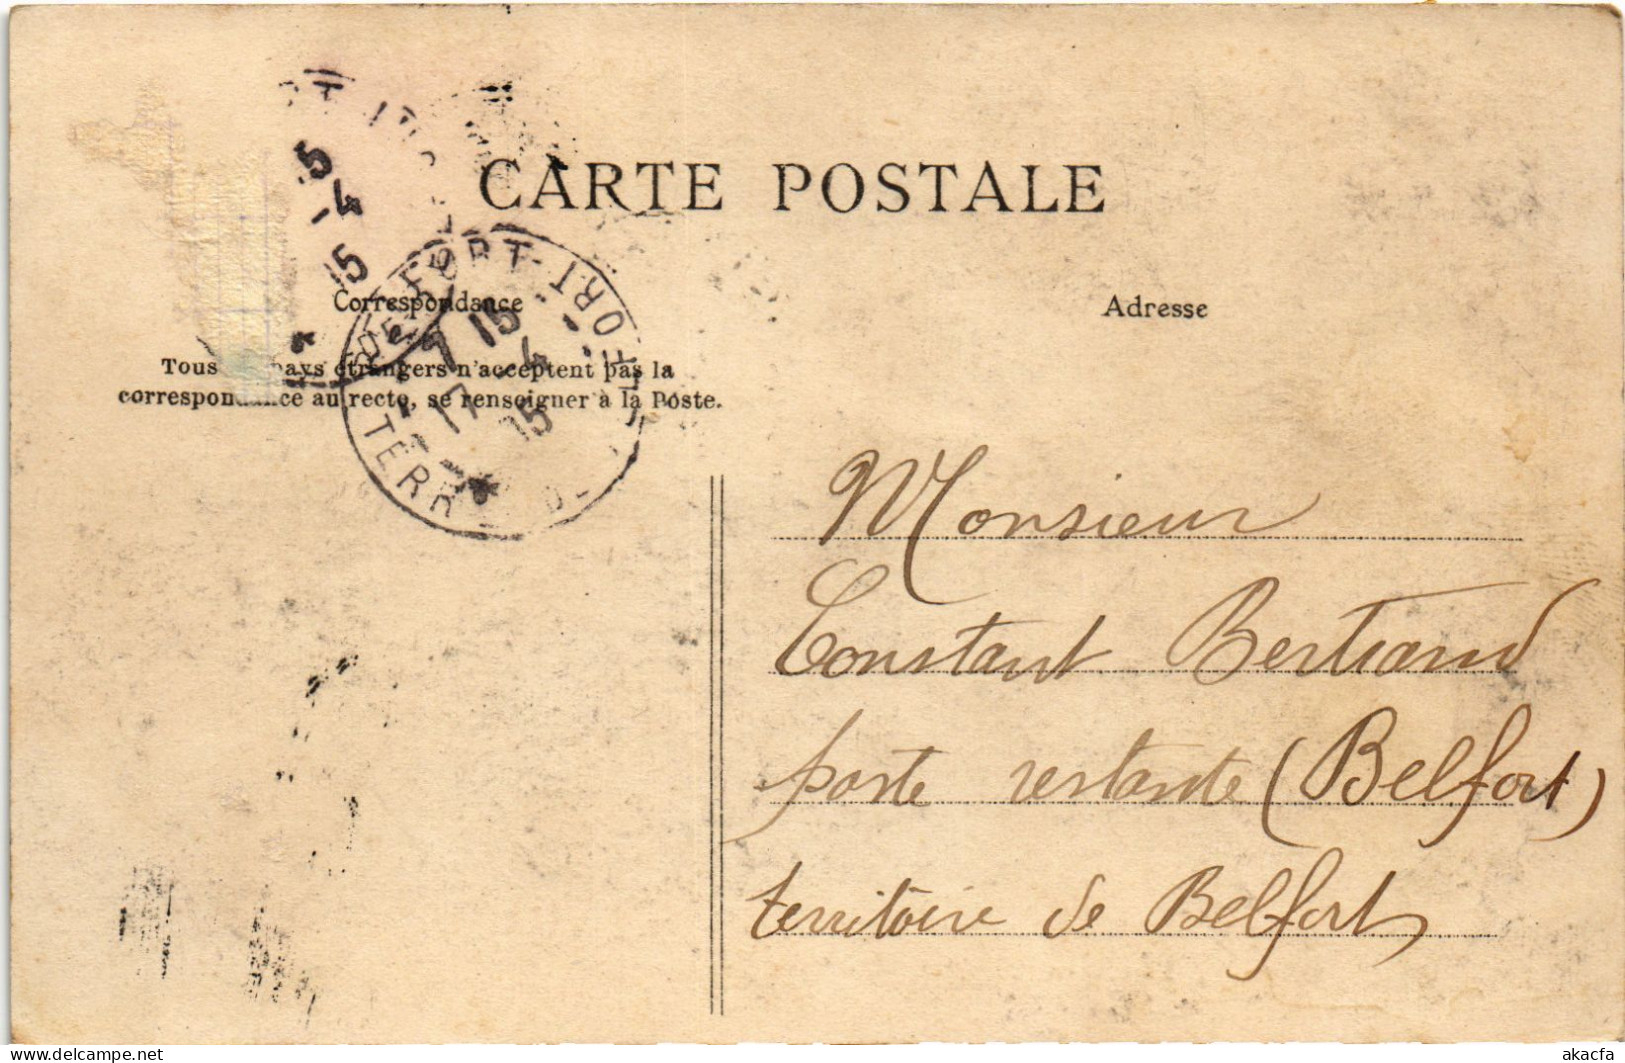 CARTE POSTALE
Correspondance
Adresse
Tous pays étrangers n'acceptent pas la
correspondance au recto, se renseigner à la Poste.
BELFORT
7 15
17 - 4
15
TERR
15
-4
15
Monsieur
Constant Bertrand
poste restante (Belfort)
territoire de Belfort
delcampe.net
akacfa